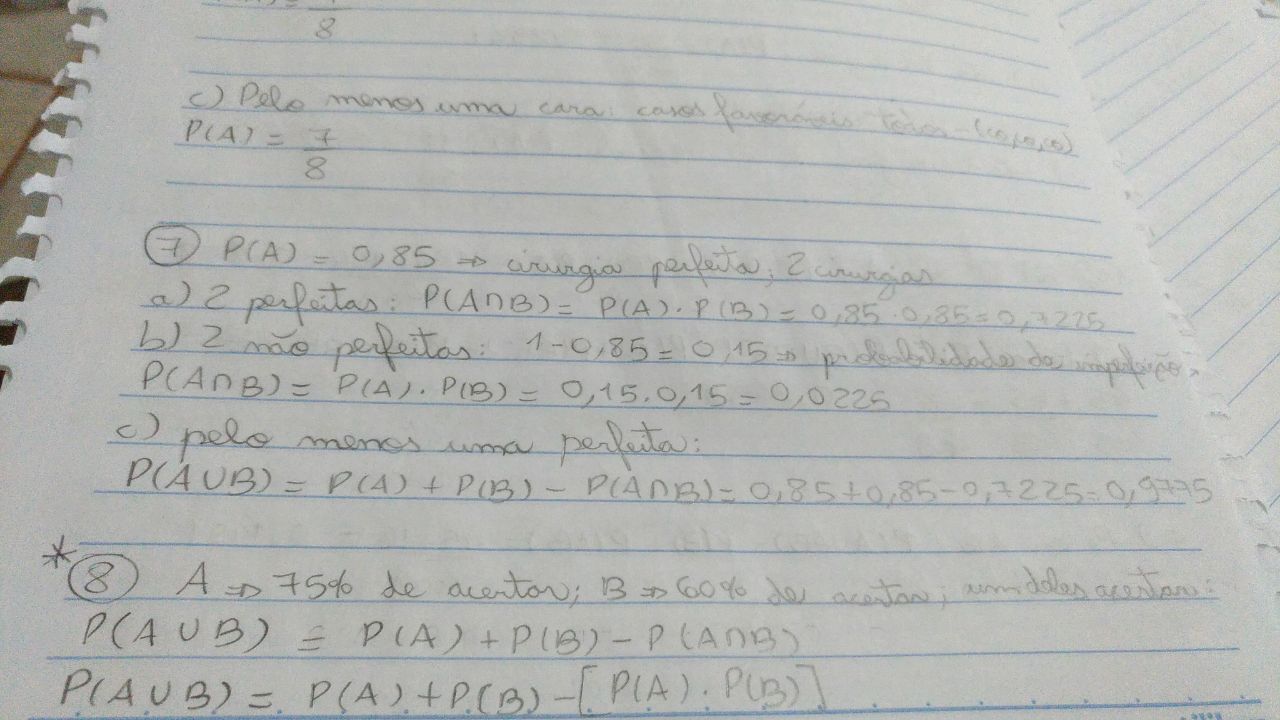 8
c) Pelo menos uma cara: casos favoráveis todos - (co,co,co)
P(A) = 7
8
7 P(A) = 0,85 ⇒ cirurgia perfeita; 2 cirurgias
a) 2 perfeitas: P(A∩B) = P(A) . P(B) = 0,85 . 0,85 = 0,7225
b) 2 não perfeitas: 1 - 0,85 = 0,15 ⇒ probabilidade da imperfeição.
P(A∩B) = P(A) . P(B) = 0,15 . 0,15 = 0,0225
c) pelo menos uma perfeita:
P(A∪B) = P(A) + P(B) - P(A∩B) = 0,85 + 0,85 - 0,7225 = 0,9775
* 8 A ⇒ 75% de acertar; B ⇒ 60% de acertar; um deles acertar:
P(A∪B) = P(A) + P(B) - P(A∩B)
P(A∪B) = P(A) + P(B) - [P(A) . P(B)]